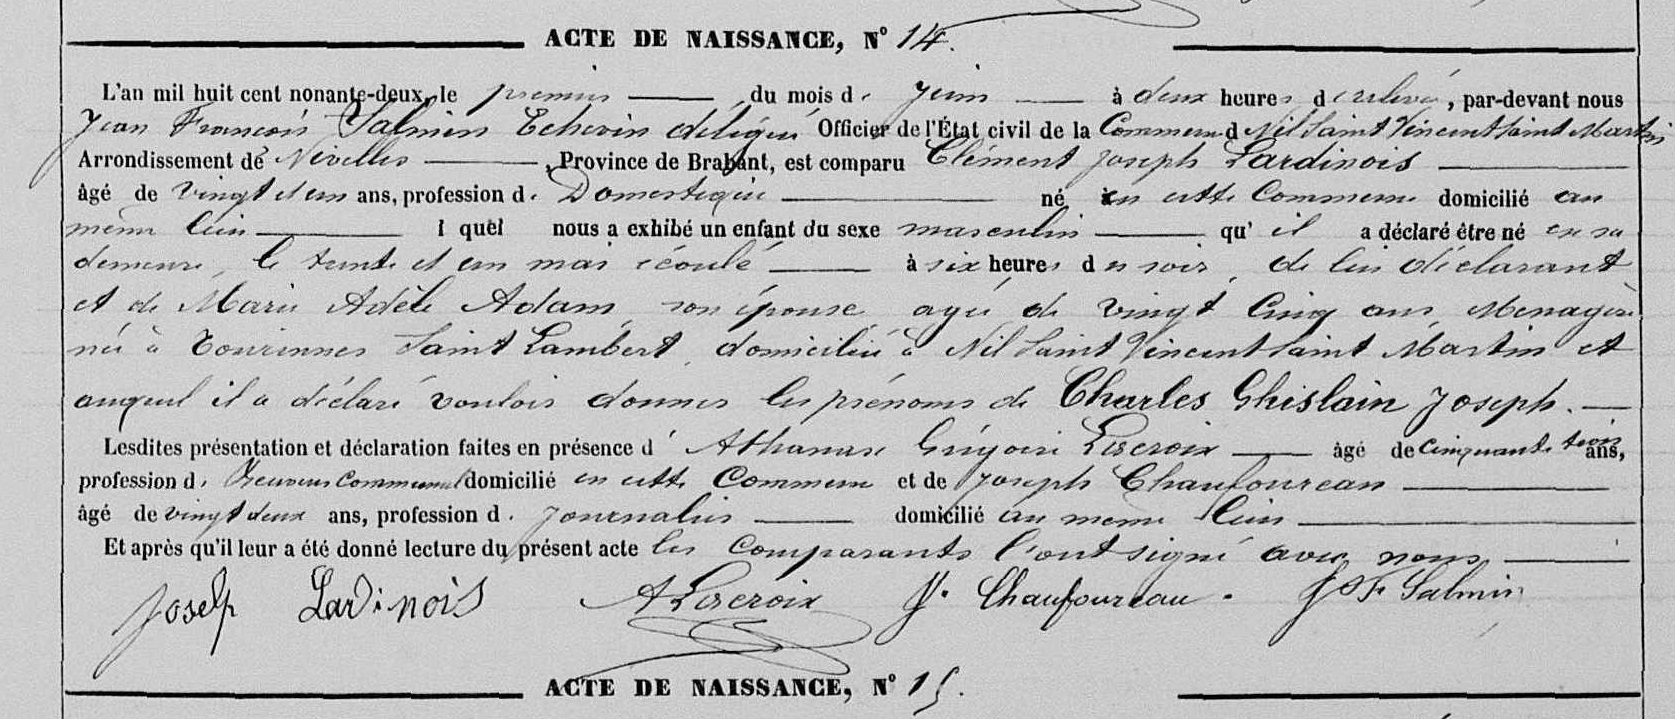 ACTE DE NAISSANCE, N° 14.
L'an mil huit cent nonante-deux, le premier du mois de Juin à deux heures de relevée, par-devant nous
Jean François Salmin Echevin délégué Officier de l'État civil de la Commune d Nil Saint Vincent Saint Martin
Arrondissement de Nivelles, Province de Brabant, est comparu Clément Joseph Lardinois
âgé de vingt et un ans, profession de Domestique né en cette Commune domicilié au
même lieu lequel nous a exhibé un enfant du sexe masculin qu'il a déclaré être né en sa
demeure, le trente et un mai écoulé à six heures du soir, de lui déclarant
et de Marie Adèle Adam, son épouse agée de vingt Cinq ans Menagère
née à Tourinnes Saint Lambert, domiciliée à Nil Saint Vincent Saint Martin et
auquel il a déclaré vouloir donner les prénoms de Charles Ghislain Joseph.
Lesdites présentation et déclaration faites en présence d' Athanase Grégoire Lacroix âgé de cinquante trois ans,
profession de Receveur Communal domicilié en cette Commune et de Joseph Chaufoureau
âgé de vingt deux ans, profession de Journalier domicilié au même lieu
Et après qu'il leur a été donné lecture du présent acte les Comparants l'ont signé avec nous
Josep Lardinois A Lacroix J. Chaufoureau. J F Salmin
ACTE DE NAISSANCE, N° 15.